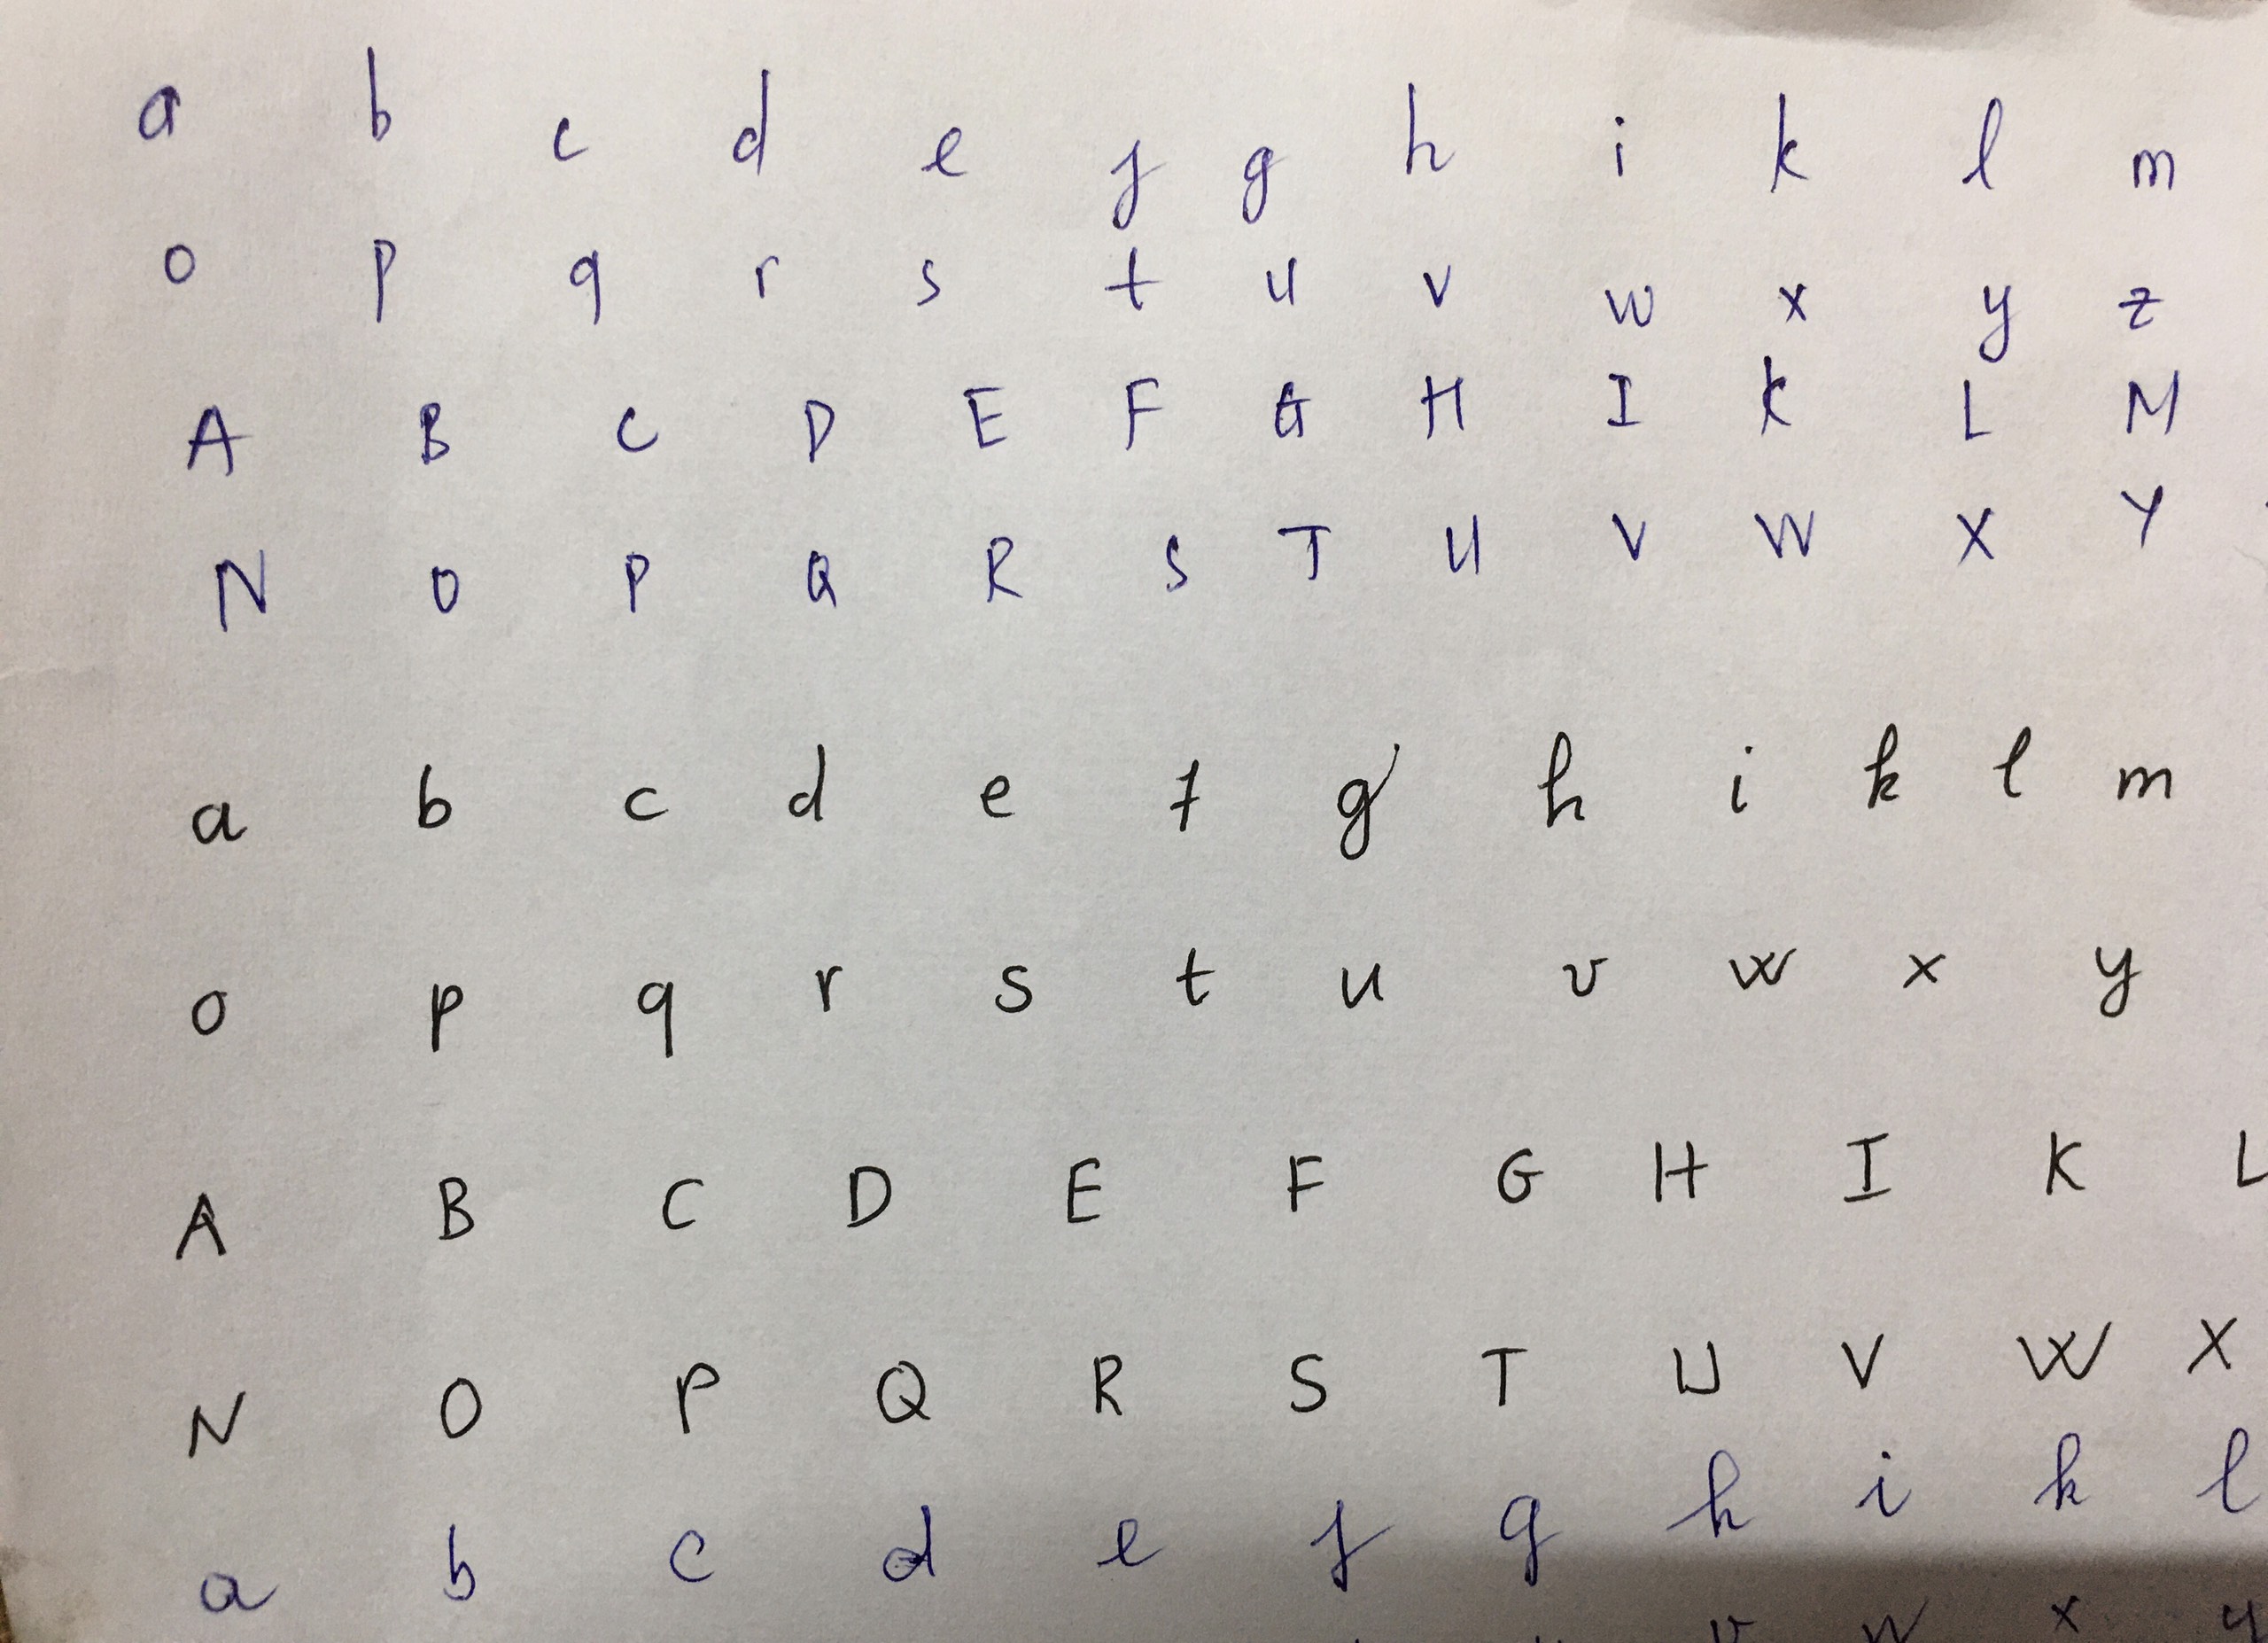 a b c d e f g h i k l m
o p q r s t u v w x y z
A B C D E F G H I K L M
N O P Q R S T U V W X Y
a b c d e f g h i k l m
o p q r s t u v w x y
A B C D E F G H I K L
N O P Q R S T U V W X
a b c d e f g h i k l
v w x y